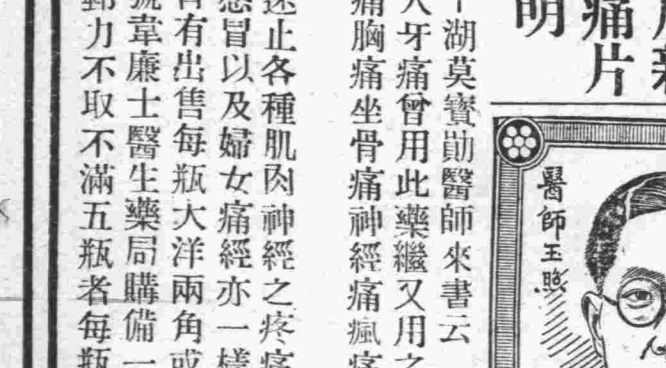 痛片
明
醫師玉照
湖莫寶勛醫師來書云
牙痛曾用此藥繼又用之
痛胸痛坐骨痛神經痛瘋痛
速止各種肌肉神經之疼痛
感冒以及婦女痛經亦一樣
有出售每瓶大洋兩角或
號韋廉士醫生藥局購備一
動力不取不滿五瓶者每瓶